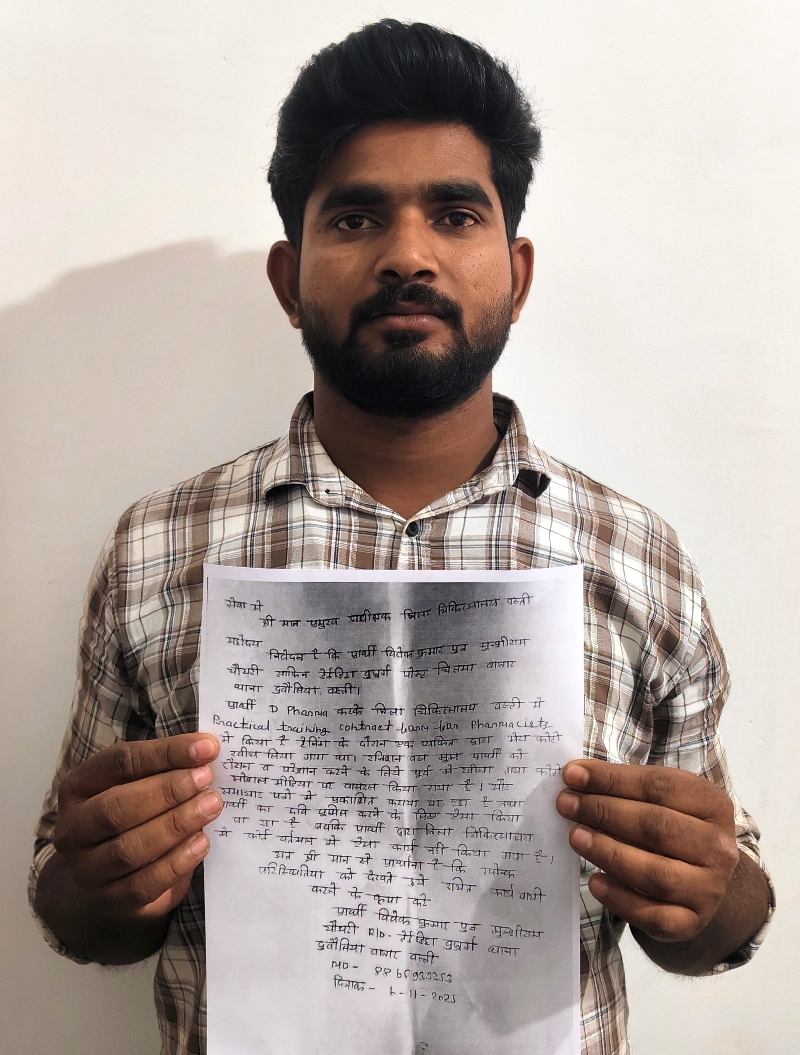 सेवा मे
श्री मान प्रमुख अधीक्षक जिला चिकित्सालय बस्ती
महोदय
निवेदन है कि प्रार्थी विवेक कुमार पुत्र मुन्शीराम
चौधरी साकिन बुजुर्ग पोस्ट चिलमा बाजार
थाना दुबौलिया, बस्ती।
प्रार्थी D Pharma करके जिला चिकित्सालय बस्ती में
Practical training contract form for Pharmacists
में किया है ट्रेनिंग के दौरान एक व्यक्ति द्वारा मेरा फोटो
खींच लिया गया था। रंजिशन वश मुझ प्रार्थी को
व परेशान करने के लिये पूर्व में खींचा गया फोटो
सोशल मीडिया पर वायरल किया गया है। और
समाचार पत्रों में प्रकाशित कराया जा रहा है तथा
प्रार्थी का छवि धूमिल करने के लिए ऐसा किया
जा रहा है जबकि प्रार्थी द्वारा जिला चिकित्सालय
में कोई वर्तमान में ऐसा कार्य नहीं किया गया है।
अतः श्री मान से प्रार्थना है कि उपरोक्त
परिस्थितियो को देखते हुये उचित कार्यवाही
करने के कृपा करे
प्रार्थी विवेक कुमार पुत्र मुन्शीराम
चौधरी R/O- बुजुर्ग थाना
दुबौलिया बाजार बस्ती
MO-
दिनांक - -11-2025